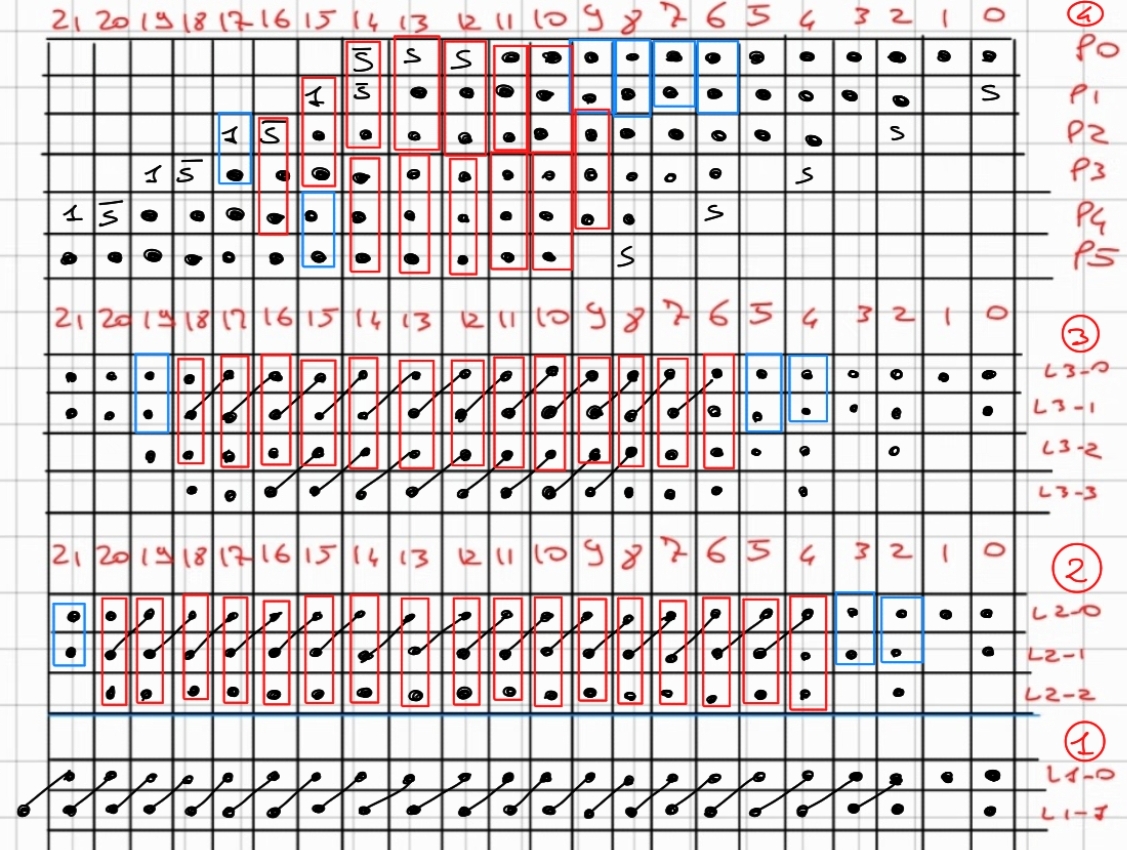 21 20 19 18 17 16 15 14 13 12 11 10 9 8 7 6 5 4 3 2 1 0 4
S̅ S S P0
1 S̅ S P1
1 S̅ S P2
1 S̅ S P3
1 S̅ S P4
S P5
21 20 19 18 17 16 15 14 13 12 11 10 9 8 7 6 5 4 3 2 1 0 3
L3-0
L3-1
L3-2
L3-3
21 20 19 18 17 16 15 14 13 12 11 10 9 8 7 6 5 4 3 2 1 0 2
L2-0
L2-1
L2-2
1
L1-0
L1-1